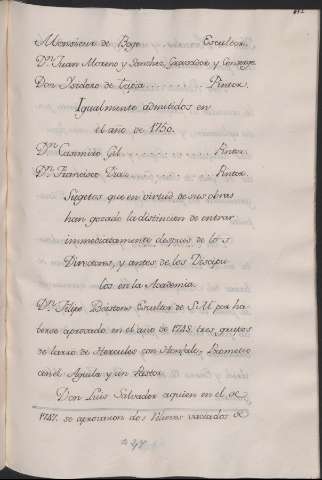 Monsieur de Bogo Escultor.
Dn. Juan Moreno y Sanchez, Gravador y Conserge.
Don Ysidoro de tapia Pintor.
Igualmente admitidos en
el año de 1750.
Dn. Casimiro Gil Pintor.
Dn. Francisco Diaz Pintor.
Sugetos que en virtud de sus obras
han gozado la distincion de entrar
immediatamente despues de los
Directores, y antes de los Discipu-
los en la Academia.
Dn. Felipe Boistons Escultor de S.M. por ha-
berse aprovado en el año de 1748. tres grupos
de barro de Hercules con Honfale, Prometeo
con el Aguila y un Pastor.
Don Luis Salvador aquien en el de
1747. se aprovaron dos Relieves vaciados de